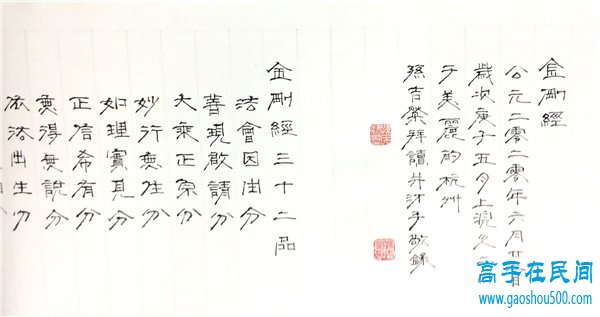 金剛經
公元二零二零年六月廿
歲次庚子五月上浣
于美麗的杭州
孫吉榮拜讀并沐手敬錄
金剛經三十二品
法會因由分
善現啟請分
大乘正宗分
妙行無住分
如理實見分
正信希有分
無得無說分
依法出生分
高手在民间
www.gaoshou500.com